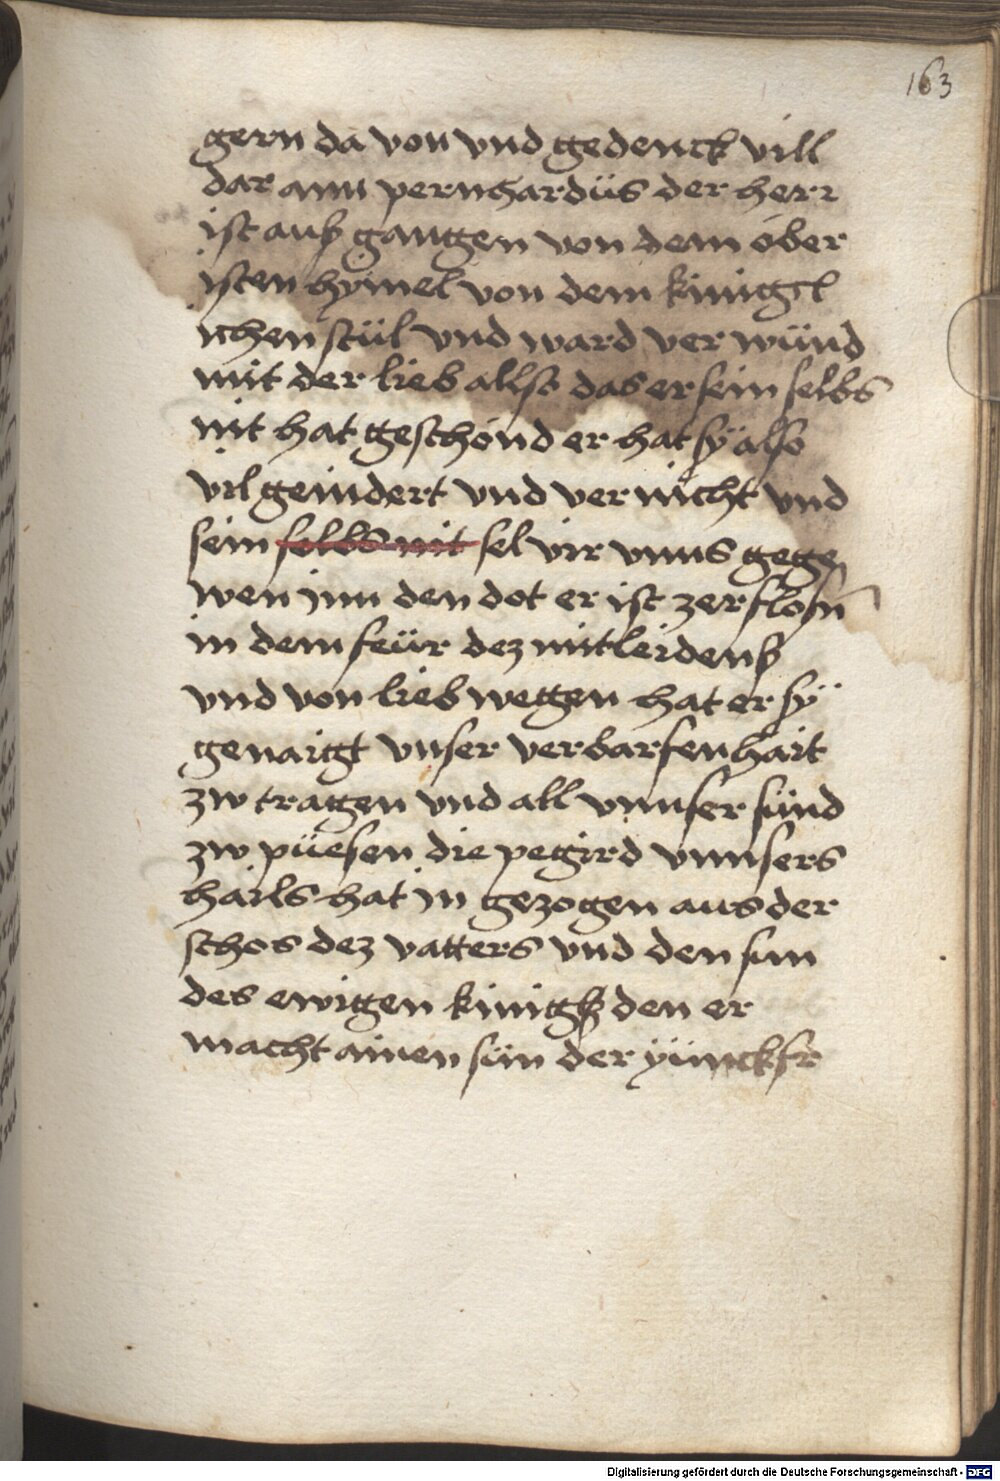 163
gern da von vnd gedenck vill
dar ann pernhardüs der herr
ist auß gangen von dem ober
isten hymel von dem kinigl
ichen stül vnd ward ver wünd
mit der lieb allso das er sein selbs
nit hat geschönd er hat sÿ also
vil gemdert vnd ver nicht vnd
sein selbs nit sel vir vnns gege
wen jnn den dot er ist zerflosn̄
in dem feür dez mitleidenß
vnd von lieb wegen hat er sÿ
genaigt vnser verbarfenhait
zw tragen vnd all vnnser sünd
zw püesen die pegird vnnsers
hails hat in gezogen aus der
schos dez vatters vnd den sun
des ewigen kinigß den er
macht ainen sün der yünckfr
Digitalisierung gefördert durch die Deutsche Forschungsgemeinschaft - DFG